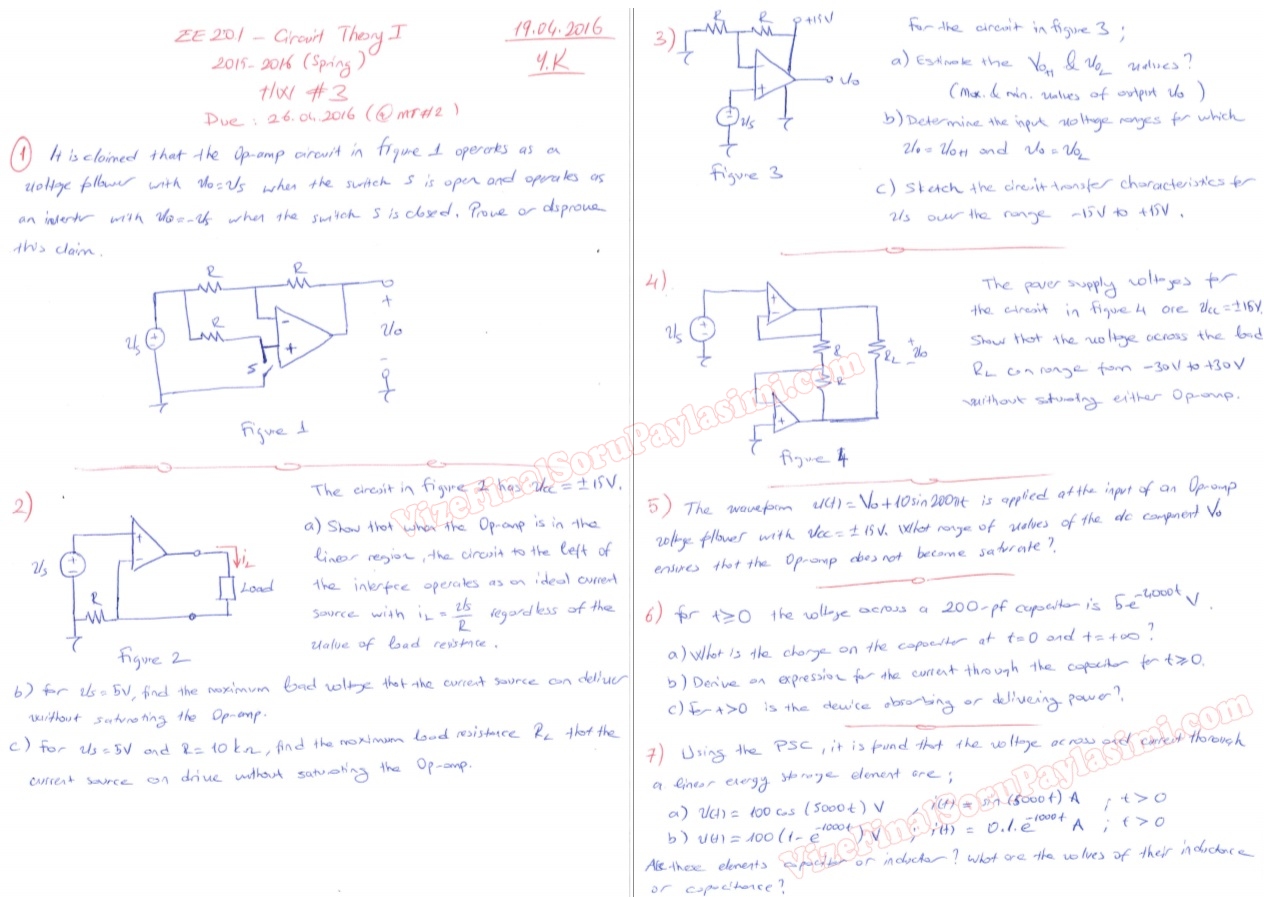 EE 201 - Circuit Theory I
2015-2016 (Spring)
H/W #3
Due: 26.04.2016 (@ MT#2)
19.04.2016
Y.K
1) It is claimed that the Op-amp circuit in figure 1 operates as a
voltage follower with Vo=Vs when the switch S is open and operates as
an inverter with Vo=-Vs when the switch S is closed. Prove or disprove
this claim.
R
R
R
Vs
S
+
Vo
-
Figure 1
2)
The circuit in figure 2 has Vcc = ±15V.
a) Show that when the Op-amp is in the
linear region, the circuit to the left of
the interface operates as an ideal current
source with iL = Vs/R regardless of the
value of load resistance.
Vs
R
iL
Load
Figure 2
b) For Vs=5V, find the maximum load voltage that the current source can deliver
without saturating the Op-amp.
c) For Vs=5V and R=10 kΩ, find the maximum load resistance RL that the
current source can drive without saturating the Op-amp.
3)
R
R
+15V
Vo
Vs
Figure 3
For the circuit in figure 3;
a) Estimate the VoH & VoL values?
(Max. & min. values of output Vo)
b) Determine the input voltage ranges for which
Vo=VoH and Vo=VoL
c) Sketch the circuit transfer characteristics for
Vs over the range -15V to +15V.
4)
Vs
R
R
RL
+
Vo
-
Figure 4
The power supply voltages for
the circuit in figure 4 are Vcc=±15V.
Show that the voltage across the load
RL can range from -30V to +30V
without saturating either Op-amp.
5) The waveform v(t)=Vo+10sin200πt is applied at the input of an Op-amp
voltage follower with Vcc=±15V. What range of values of the dc component Vo
ensures that the Op-amp does not become saturate?
6) for t≥0 the voltage across a 200-pf capacitor is 5e^-4000t V.
a) What is the charge on the capacitor at t=0 and t=+∞?
b) Derive an expression for the current through the capacitor for t≥0.
c) For t>0 is the device absorbing or delivering power?
7) Using the PSC, it is found that the voltage across and current thorough
a linear energy storage element are;
a) v(t) = 100 cos (5000t) V , i(t) = sin(5000t) A ; t>0
b) v(t) = 100 (1-e^-1000t) V ; i(t) = 0.1.e^-1000t A ; t>0
Are these elements capacitor or inductor? What are the values of their inductance
or capacitance?
VizeFinalSoruPaylasimi.com
VizeFinalSoruPaylasimi.com